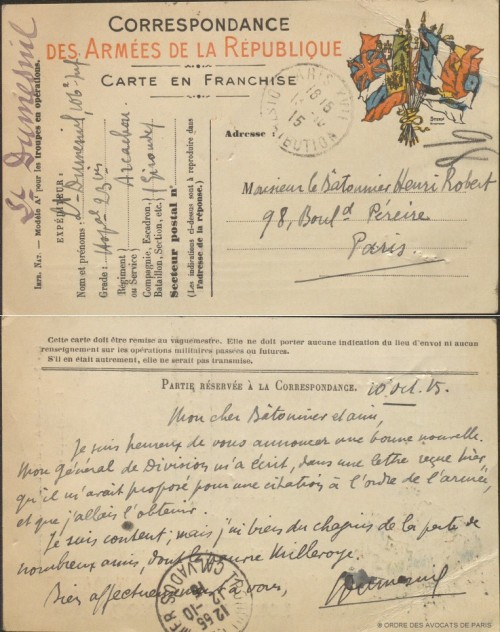 CORRESPONDANCE
DES ARMÉES DE LA RÉPUBLIQUE
CARTE EN FRANCHISE
Adresse :
Monsieur le Bâtonnier Henri Robert
98, Boul.d Péreire
Paris
Dumesnil
Impr. Nat. — Modèle A1 pour les troupes en opérations.
EXPÉDITEUR :
Nom et prénoms : Lt Dumesnil, 106e Inf
Grade : Hopal 23 bis
Régiment
ou Service) Arcachon
Compagnie, Escadron, (Gironde)
Bataillon, Section, etc.
Secteur postal n°
(Les indications ci-dessus sont à reproduire dans
l'adresse de la réponse.)
PARIS XVII
18 15
15
DISTRIBUTION
Cette carte doit être remise au vaguemestre. Elle ne doit porter aucune indication du lieu d'envoi ni aucun
renseignement sur les opérations militaires passées ou futures.
S'il en était autrement, elle ne serait pas transmise.
PARTIE RÉSERVÉE À LA CORRESPONDANCE. 10 oct. 15.
Mon cher Bâtonnier et ami,
Je suis heureux de vous annoncer une bonne nouvelle.
Mon général de Division m'a écrit, dans une lettre reçue hier,
qu'il m'avait proposé pour une citation à l'ordre de l'armée,
et que j'allais l'obtenir.
Je suis content ; mais j'ai bien du chagrin de la perte de
nombreux amis, dont le pauvre Millevoye.
Bien affectueusement à vous,
Dumesnil
12 55
12-10
CALVADOS
® ORDRE DES AVOCATS DE PARIS